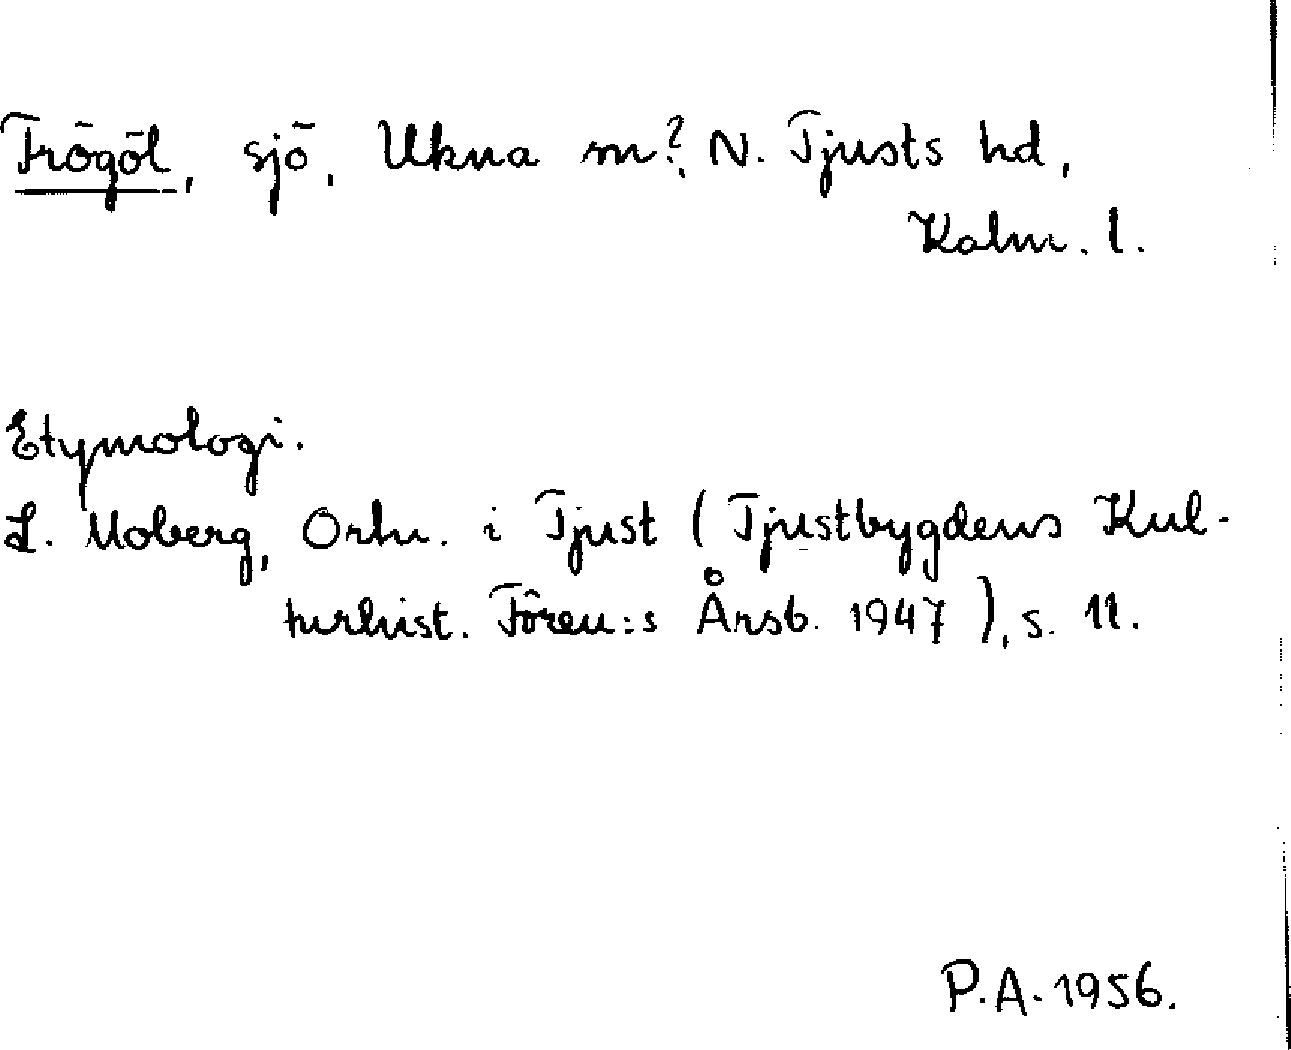 Frögöl, sjö, Ukna sn? N. Tjusts hd,
Kalm. l.
Etymologi.
L. Moberg, Ortn. i Tjust (Tjustbygdens Kul-
turhist. Fören:s Årsb. 1947), s. 11.
P.A. 1956.